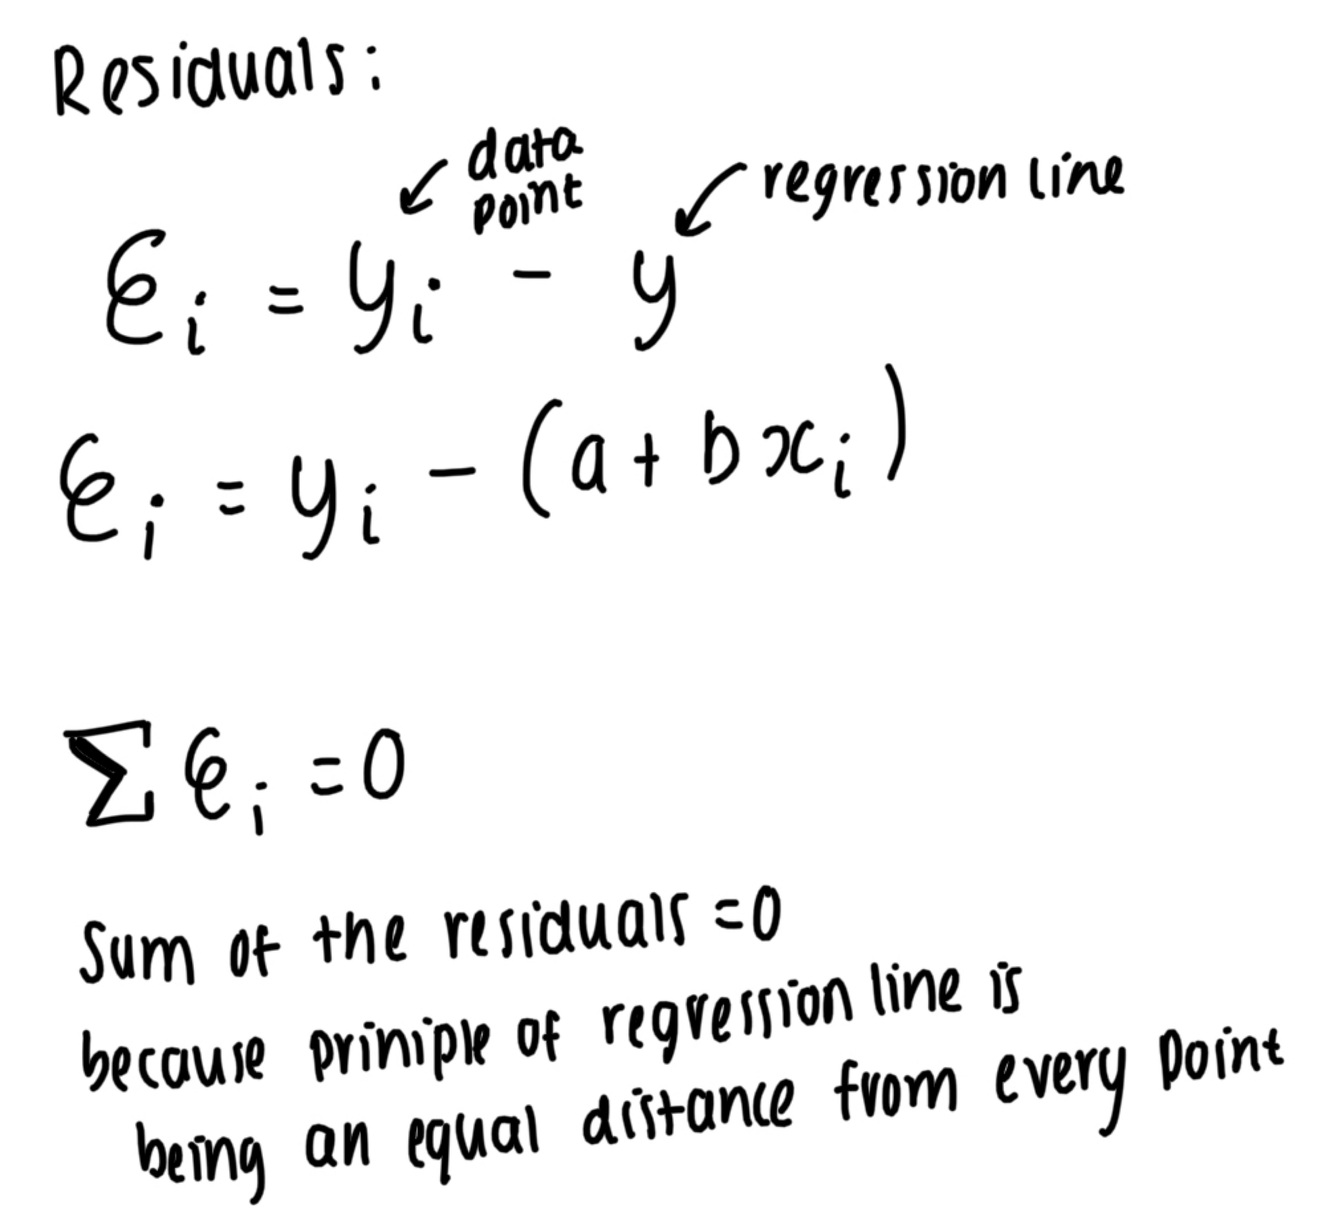 Residuals:
data
point
regression line
ϵi = yi - y
ϵi = yi - (a + bxi)
∑ϵi = 0
Sum of the residuals = 0
because priniple of regression line is
being an equal distance from every point